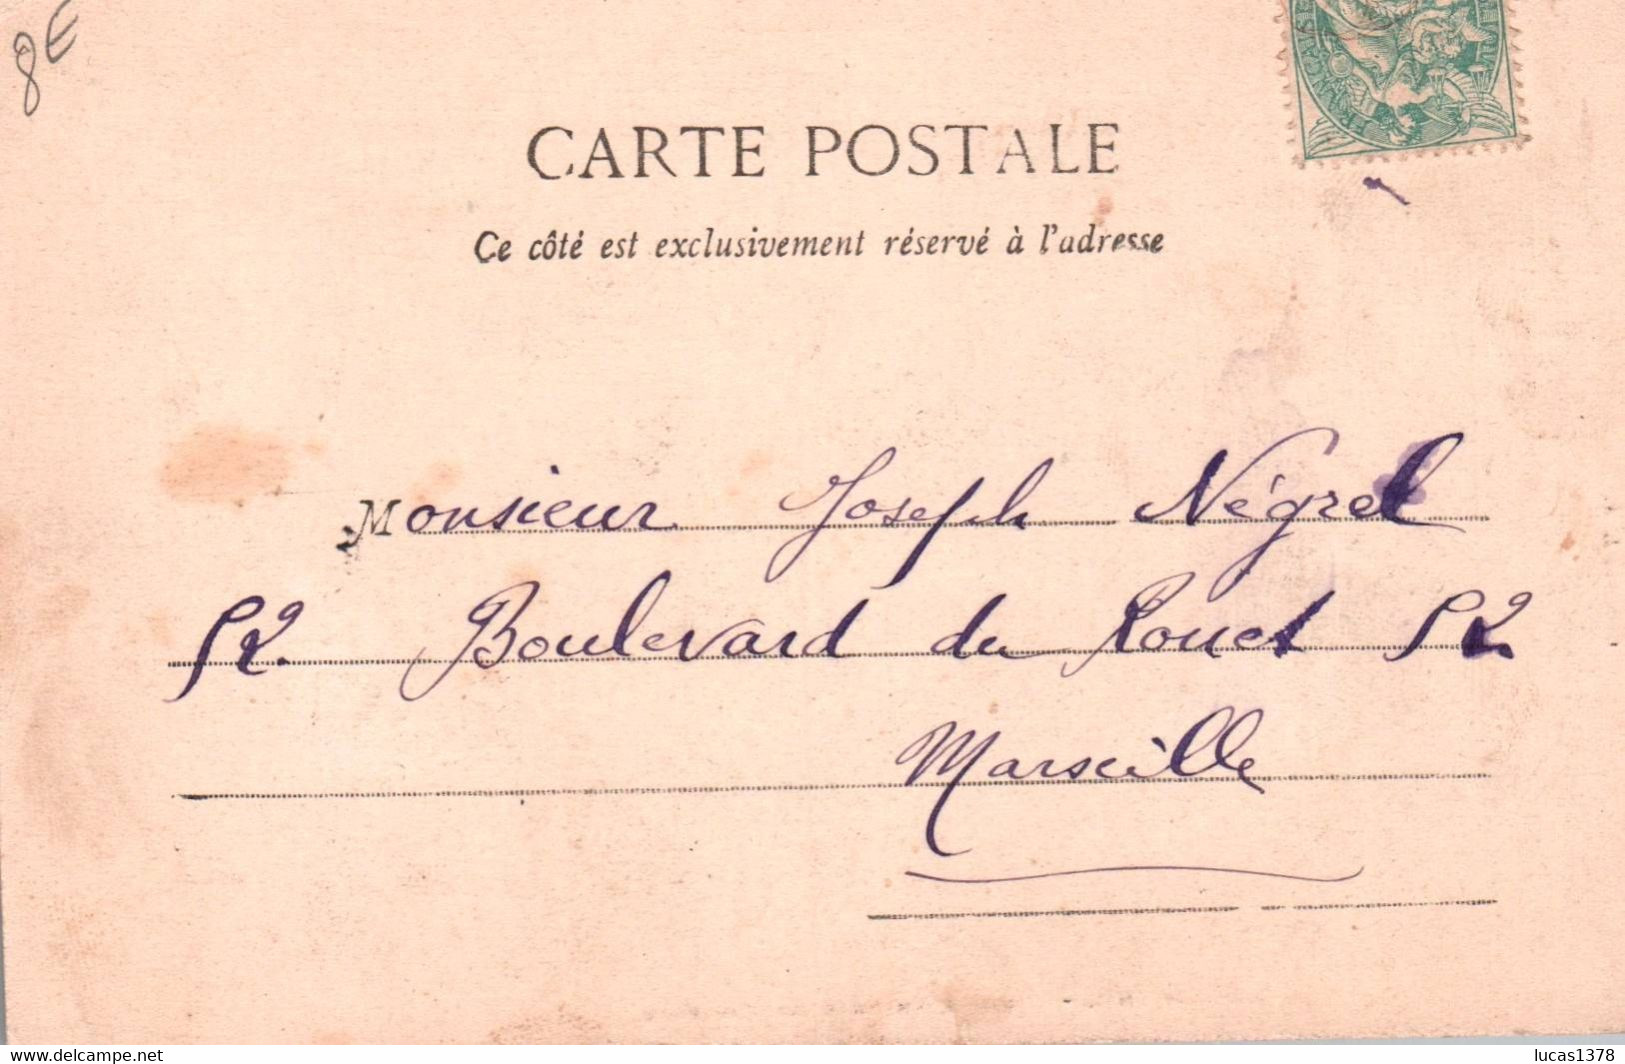 8E
CARTE POSTALE
Ce côté est exclusivement réservé à l'adresse
Monsieur Joseph Négrel
52. Boulevard du Rouet 52
Marseille
www.delcampe.net
lucas1378